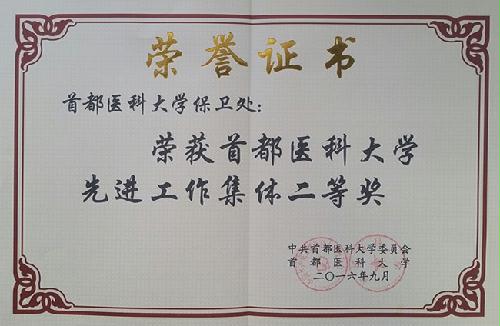 荣誉证书
首都医科大学保卫处：
荣获首都医科大学
先进工作集体二等奖
中共首都医科大学委员会
首都医科大学
二〇一六年九月